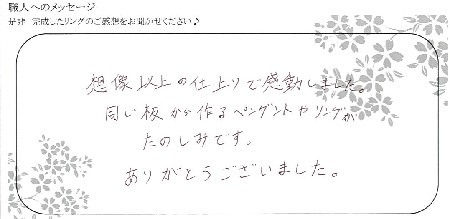 職人へのメッセージ
是非 完成したリングのご感想をお聞かせください♪
想像以上の仕上りで感動しました。
同じ板から作るペンダントやリングが
たのしみです。
ありがとうございました。